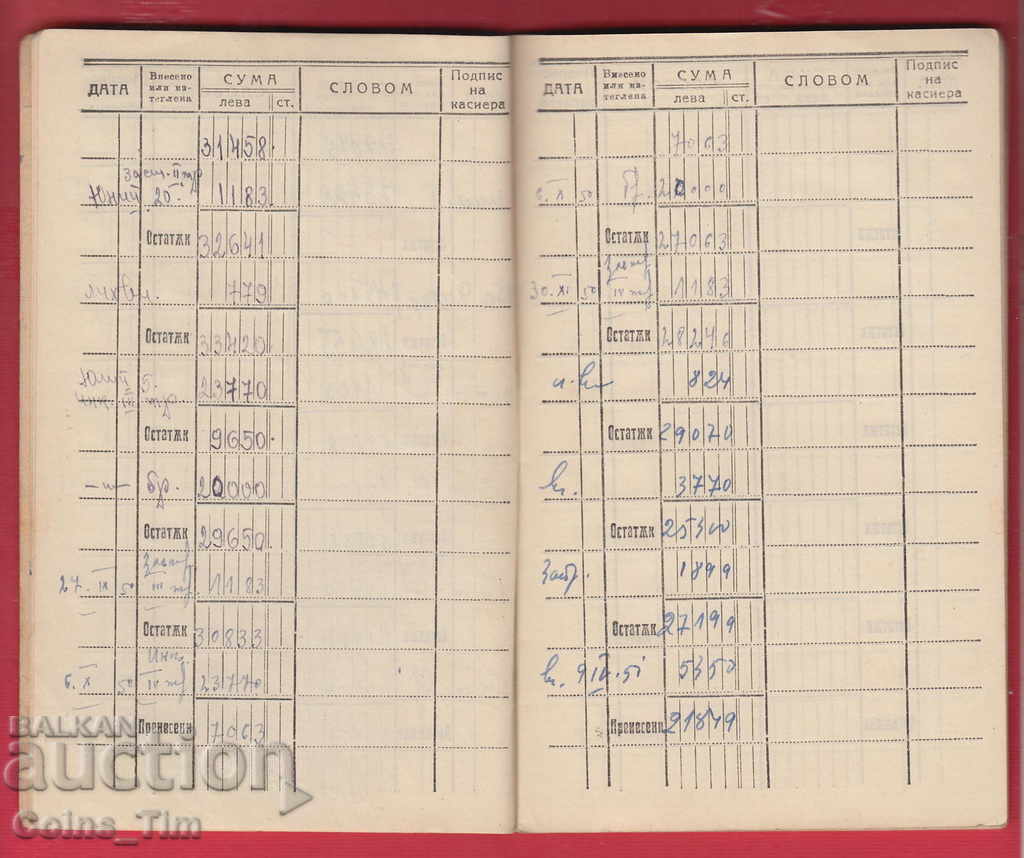 ДАТА Внесено или из- теглена СУМА лева ст. СЛОВОМ Подпис на касиера
31458.
Застр. II тр
Юний 20. 1183.
Остатѫк 32641
лихви. 779
Остатѫк 33420
Юлий 5. 23770
III тр
Остатѫк 9650.
–"– бр. 20000
Остатѫк 29650.
27. IX 50 III тр 1183
Остатѫк 30833
Инк.
6. X 50 IV тр 23770
Пренесени 7063
ДАТА Внесено или из- теглена СУМА лева ст. СЛОВОМ Подпис на касиера
7063
6. X 50 бр. 20000
Остатѫк 27063
30. XI 50 IV тр 1183
Остатѫк 28246
824
Остатѫк 29070
3770
Остатѫк 25300
Застр. 1899
Остатѫк 27199
9 IV. 51 5350
Пренесени 21849
BALKAN
auction
Coins_Tim